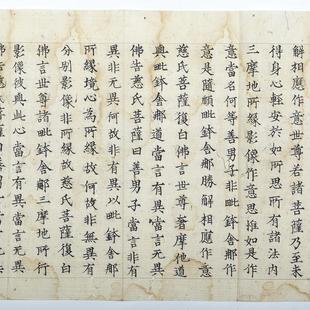 解相應作意世尊若諸菩薩乃至未
得身心輕安於如所思所有諸法內
三摩地所緣影像作意思惟如是作
意當名何等善男子非毗鉢舍那作
意是隨順毗鉢舍那勝解相應作意
慈氏菩薩復白佛言世尊奢摩他道
與毗鉢舍那道當言有異當言無異
佛告慈氏菩薩曰善男子當言非有
異非無異何故非有異以毗鉢舍那
所緣境心為所緣故何故非無異有
分別影像非所緣故慈氏菩薩復白
佛言世尊諸毗鉢舍那三摩地所行
影像彼與此心當言有異當言無異